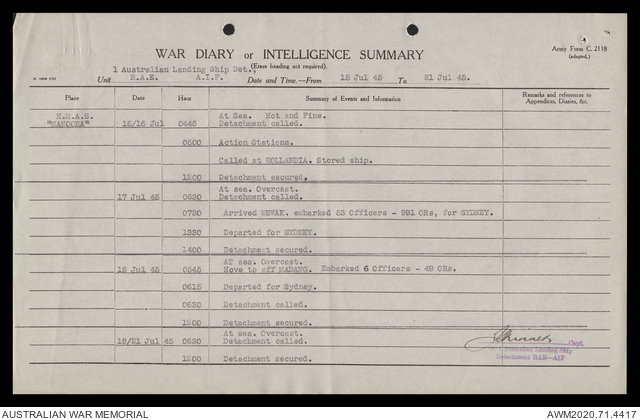 WAR DIARY or INTELLIGENCE SUMMARY
Army Form C. 2118
(adapted.)
(Erase heading not required).
1 Australian Landing Ship Det.,
Unit R.A.E. A.I.F. Date and Time.—From 15 Jul 45 To 21 Jul 45.
Place Date Hour Summary of Events and Information Remarks and references to
Appendices, Diaries, &c.
H.M.A.S. At Sea. Hot and Fine.
"MANOORA" 15/16 Jul 0445 Detachment called.
0500 Action Stations.
Called at HOLLANDIA. Stored ship.
1200 Detachment secured.
At sea. Overcast.
17 Jul 45 0630 Detachment called.
0730 Arrived WEWAK. embarked 53 Officers - 991 ORs, for SYDNEY.
1330 Departed for SYDNEY.
1400 Detachment secured.
AT sea. Overcast.
18 Jul 45 0545 Hove to off MADANG. Embarked 6 Officers - 49 ORs.
0615 Departed for Sydney.
0630 Detachment called.
1200 Detachment secured.
At sea. Overcast.
19/21 Jul 45 0630 Detachment called.
Capt,
Australian Landing Ship
Detachment RAE—AIF
1200 Detachment secured.
AUSTRALIAN WAR MEMORIAL
AWM2020.71.4417